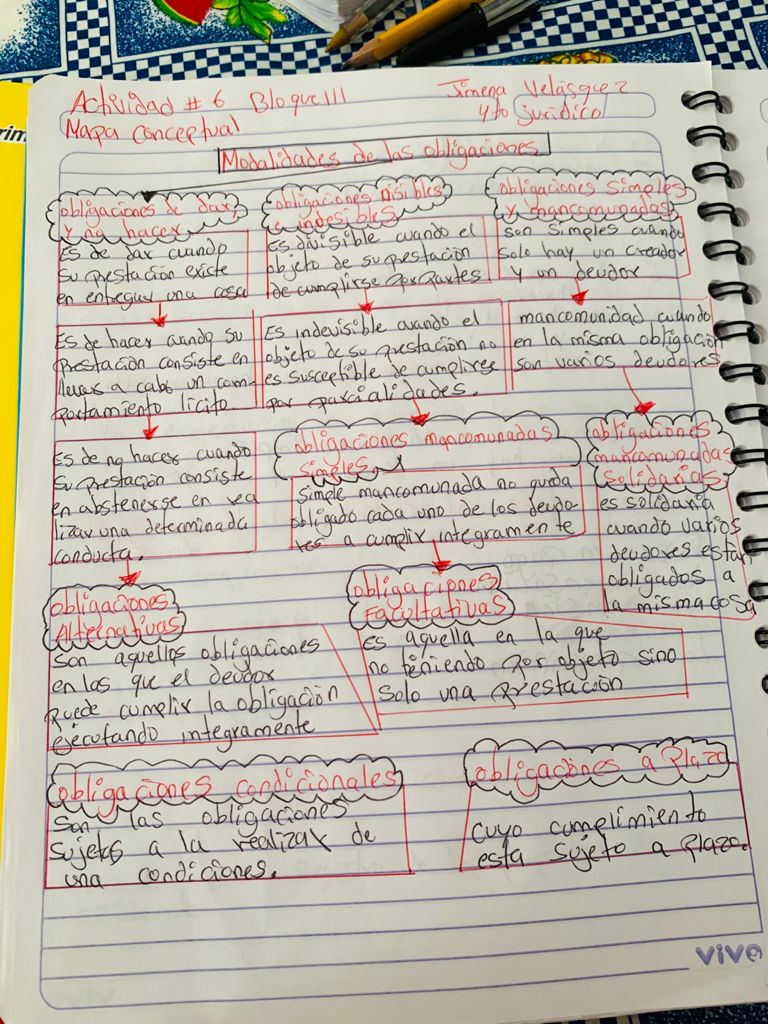 Actividad # 6 Bloque III
Jimena Velásquez
Mapa conceptual
4to jurídico
Modalidades de las obligaciones
obligaciones de dar,
y no hacer
Es de dar cuando
su prestación existe
en entregar una cosa
Es de hacer cuando su
prestación consiste en
llevar a cabo un com-
portamiento licito.
Es de no hacer cuando
su prestación consiste
en abstenerse en rea
lizar una determinada
conducta.
obligaciones disibles
e indesibles
Es divisible cuando el
objeto de su prestación
de cumplirse por partes
Es indevisible cuando el
objeto de su prestación no
es susceptible de cumplirse
por parcialidades.
obligaciones simples
y mancomunadas
son simples cuando
solo hay un creador
y un deudor
mancomunidad cuando
en la misma obligación
son varios deudores
obligaciones mancomunadas
simples
simple mancomunada no queda
obligado cada uno de los deudo-
res a cumplir integramente
obligaciones
mancomunadas
solidarias
es solidaria
cuando varios
deudores estan
obligados a
la misma cosa
obligaciones
Alternativas
son aquellas obligaciones
en las que el deudor
puede cumplir la obligación
ejecutando integramente
obligaciones
Facultativas
es aquella en la que
no teniendo por objeto sino
solo una prestación
obligaciones condicionales
son las obligaciones
sujetas a la realizar de
una condiciones.
obligaciones a Plazo
cuyo cumplimiento
esta sujeto a plazo.
vivo